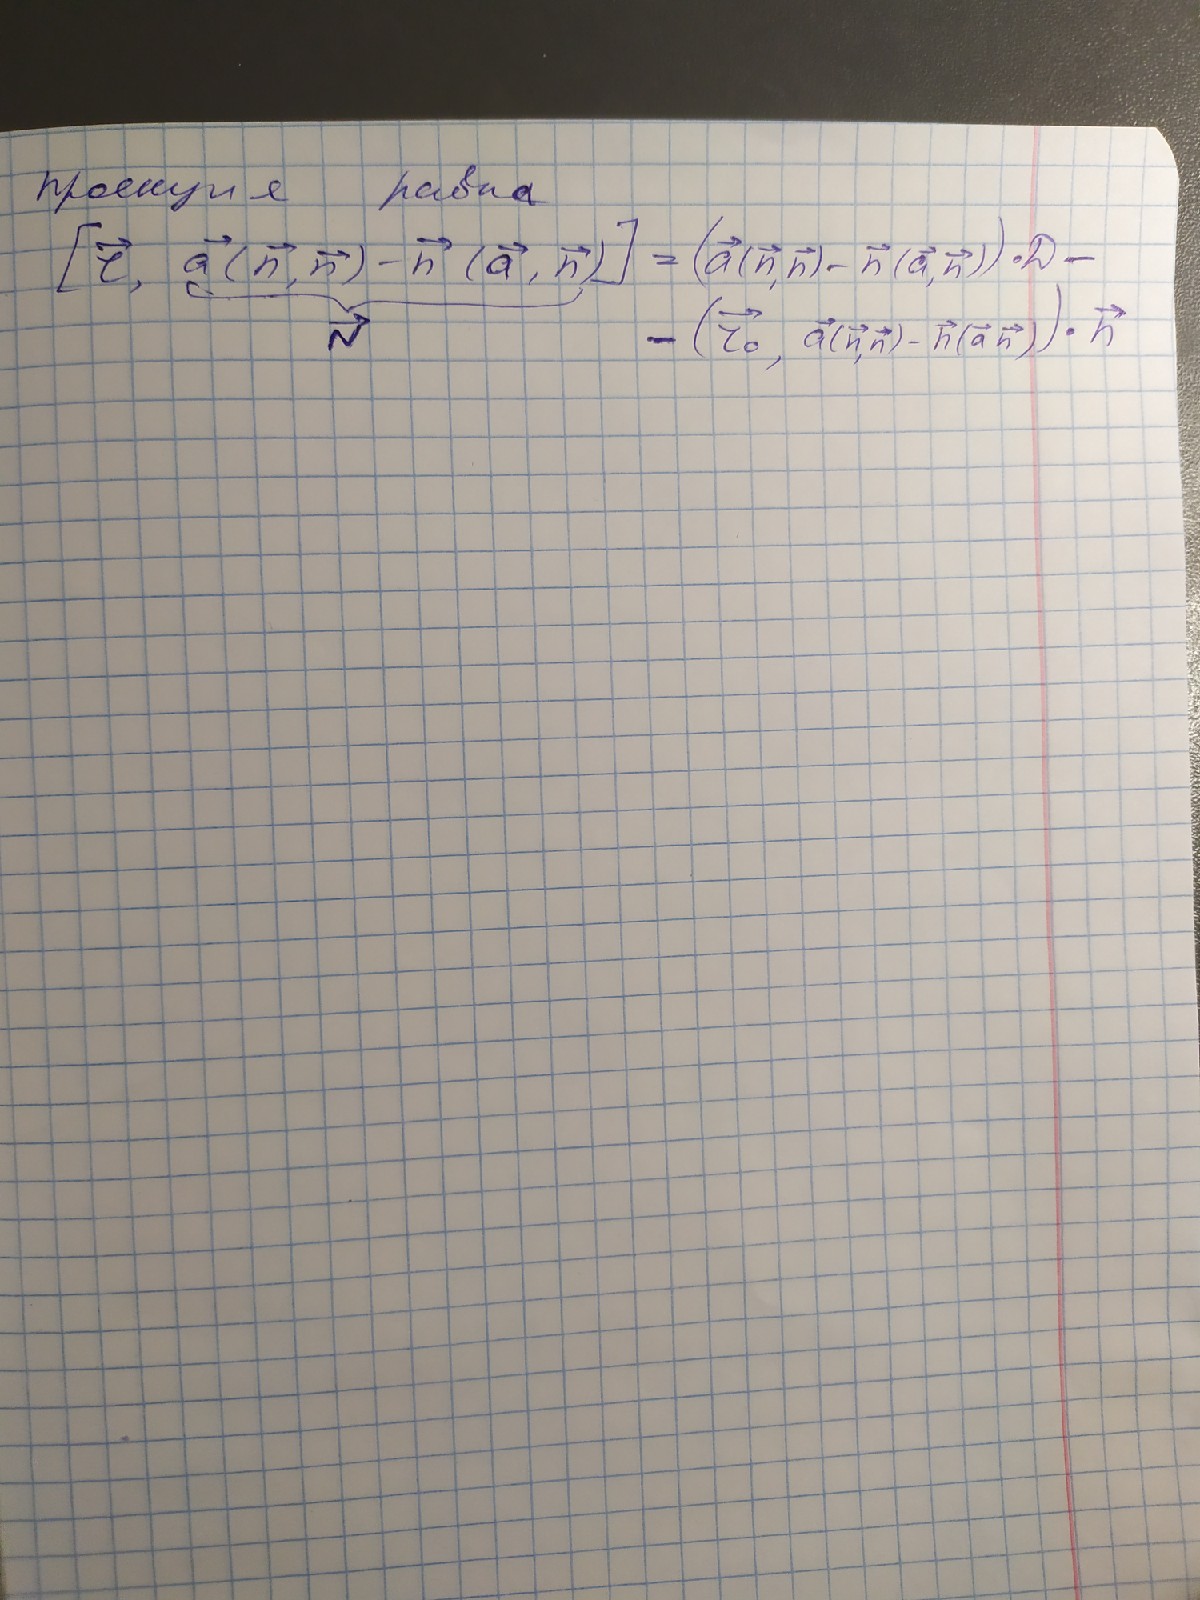 проекция равна
[r⃗, a⃗(n⃗,n⃗) - n⃗(a⃗,n⃗)] = (a⃗(n⃗,n⃗) - n⃗(a⃗,n⃗))·D -
N⃗
- (r⃗₀, a⃗(n⃗,n⃗) - n⃗(a⃗ n⃗))·n⃗